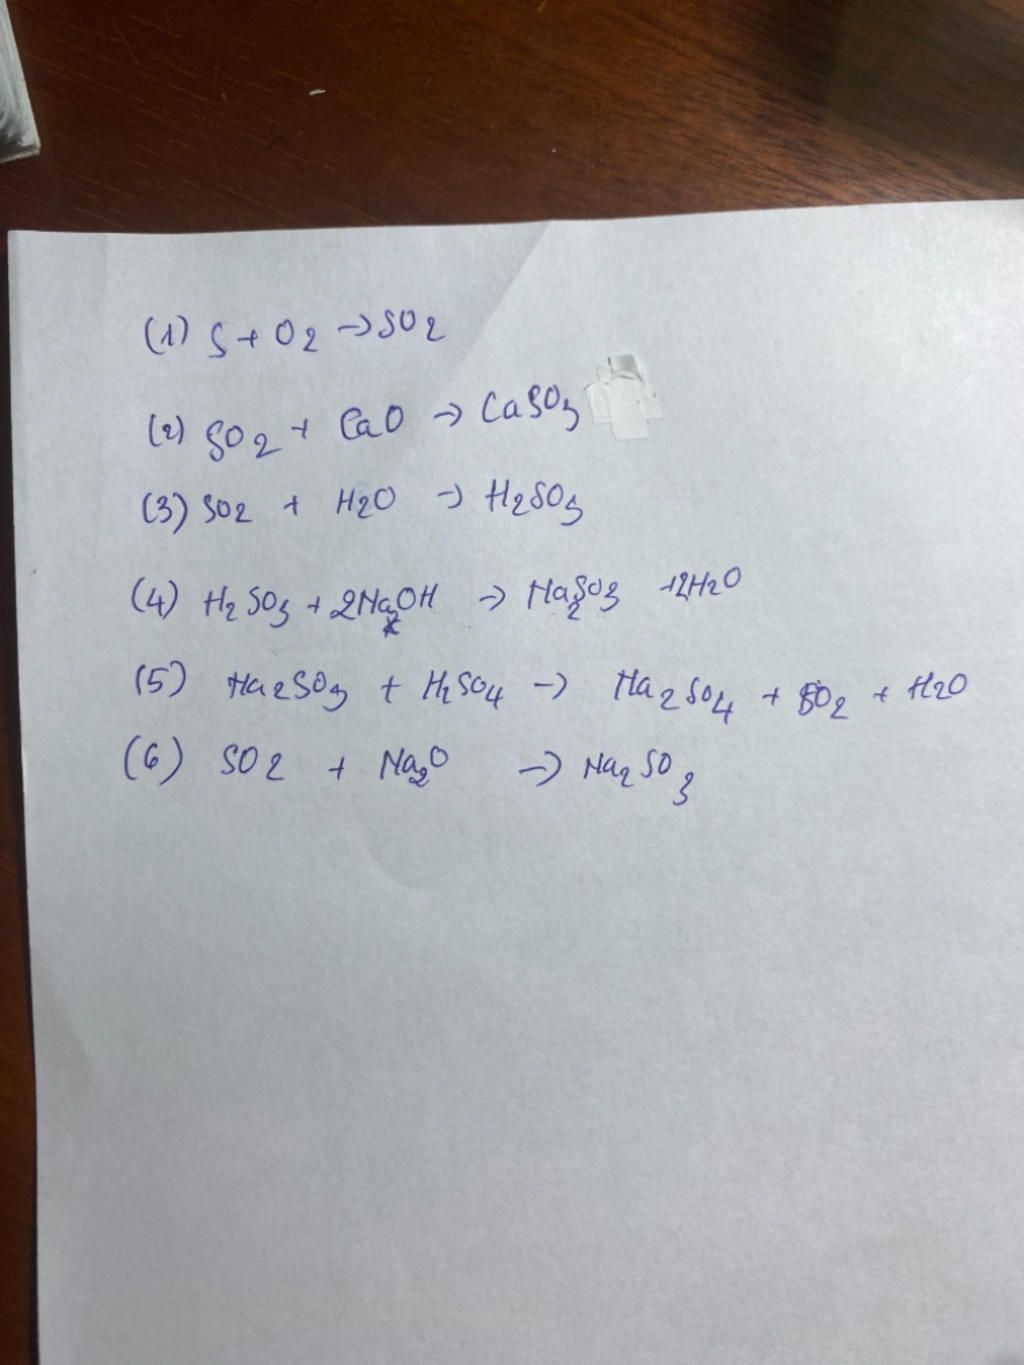 (1) S + O2 → SO2
(2) SO2 + CaO → CaSO3
(3) SO2 + H2O → H2SO3
(4) H2SO3 + 2NaOH → Na2SO3 + 2H2O
(5) Na2SO3 + H2SO4 → Na2SO4 + SO2 + H2O
(6) SO2 + Na2O → Na2SO3